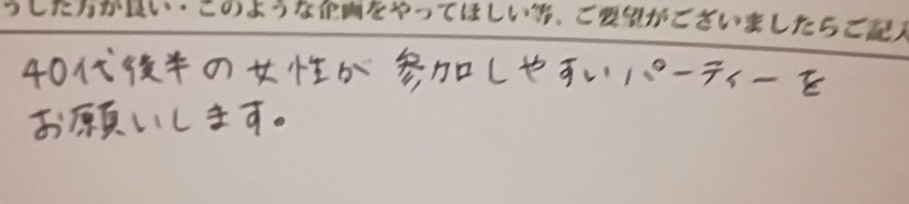 うした方が良い・このような企画をやってほしい等、ご要望がございましたらご記入
40代後半の女性が参加しやすいパーティーを
お願いします。